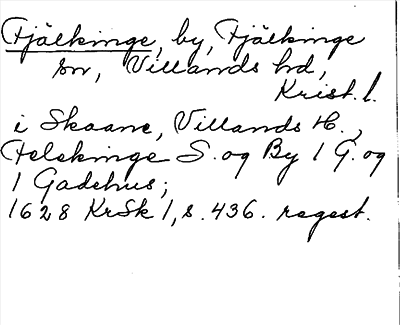 Fjälkinge, by, Fjälkinge
sn, Villands hd,
Krist. l.
i Skaane, Villands H.,
Felskinge S. og By 1 G. og
1 Gadehus;
1628 KrSk 1, s. 436. regest.